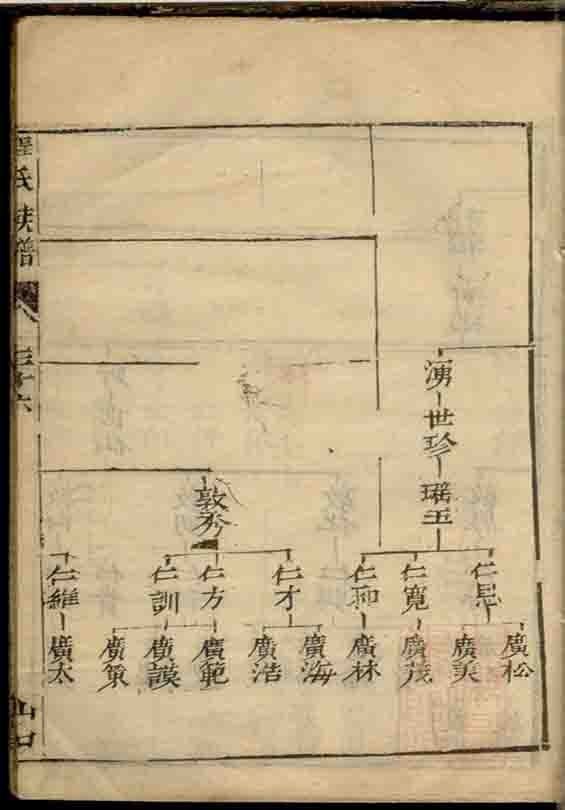 湧 世珍 瑤玉
仁恩 仁寬 仁和
廣松 廣美 廣茂 廣林
敦秀
仁才 仁方 仁訓 仁維
廣海 廣浩 廣範 廣謨 廣策 廣太
程氏族譜
三十六
山口